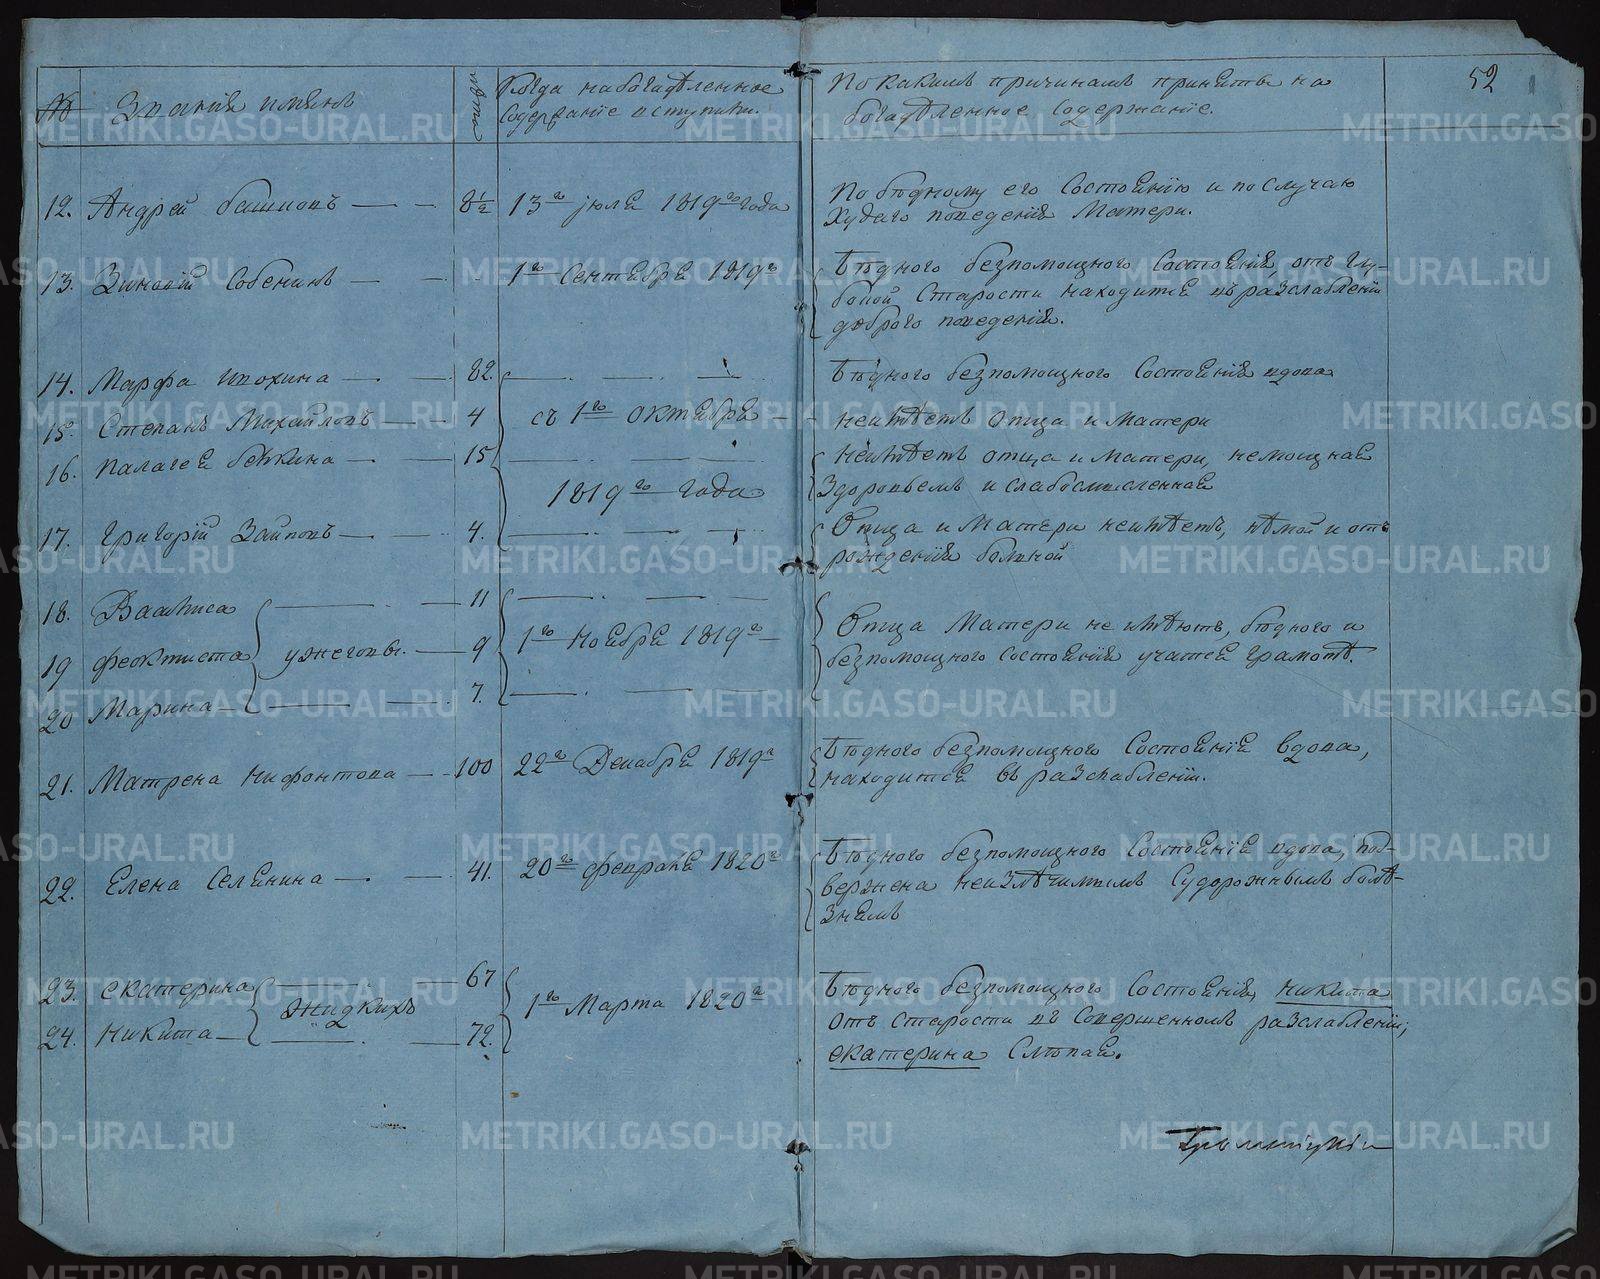 52
№ Званія именъ лѣта Когда на богадѣленное По какимъ причинамъ приняты на
содержаніе вступили. богадѣленное содержаніе.
12. Андрей Башновъ 8½ 13го июля 1819го года По бѣдному его состоянію и по случаю
худаго поведенія матери.
13. Зиновій Собенинъ 1го Сентября 1819го Бѣдного безпомощного состоянія, отъ глу-
бокой старости находится въ разслабленіи
доброго поведенія.
14. Марфа Ивохина 82. Бѣдного безпомощного состоянія вдова
15. Степанъ Михайловъ 4 съ 1го октября неимѣетъ отца и матери
16. Палагея Бѣкина 15 неимѣетъ отца и матери, немощная
1819го года здоровьемъ и слабосмысленная
17. Григорій Заиповъ 4. Отца и матери неимѣетъ, нѣмой и отъ
рожденія больной
18. Васлиса 11
19 Феоктиста Ужеговы. 9 1го Ноября 1819го Отца матери не имѣютъ, бѣдного и
безпомощного состоянія учатся грамотѣ.
20 Марина 7.
21. Матрена Нифонтова 100 22го Декабря 1819го Бѣдного безпомощного состоянія вдова,
находится въ разслабленіи.
22. Елена Селянина 41. 20го февраля 1820го Бѣдного безпомощного состоянія вдова, под-
вержена неизлѣчимымъ судорожнымъ болѣ-
знямъ
23. Екатерина 67
Жидкихъ 1го Марта 1820го Бѣдного безпомощного состоянія, Никита
24. Никита 72. отъ старости въ совершенномъ разслабленіи,
Екатерина слѣпая.
METRIKI.GASO-URAL.RU